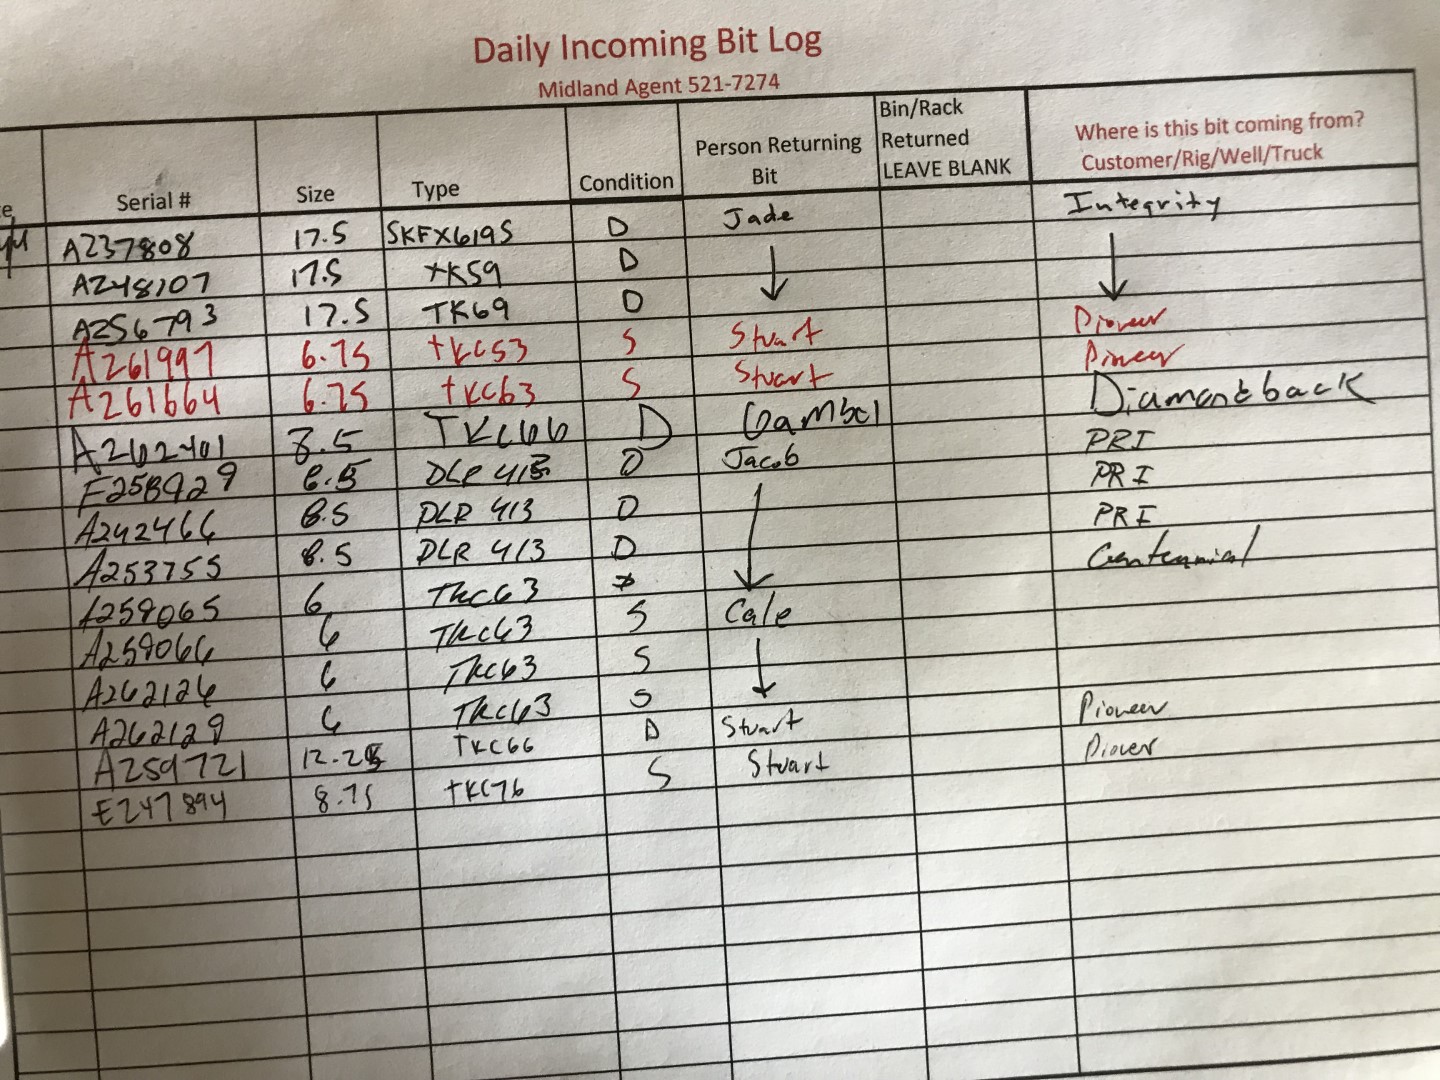 Daily Incoming Bit Log
Midland Agent 521-7274
Serial # Size Type Condition Person Returning Bit Bin/Rack Returned LEAVE BLANK Where is this bit coming from? Customer/Rig/Well/Truck
A237808 17.5 SKFX619S D Jade Integrity
A248107 17.5 TK59 D
A256793 17.5 TK69 D
A261997 6.75 TKC53 S Stuart Pioneer
A261664 6.75 TKC63 S Stuart Pioneer
A262401 8.5 TKC66 D Gambel Diamondback
E258929 8.5 DLR 413 D Jacob PRI
A242466 8.5 DLR 413 D PRI
A253755 8.5 DLR 413 D PRI
A259065 6 TKC63 Centennial
A259066 6 TKC63 S Cale
A262126 6 TKC63 S
A262129 6 TKC63 S
A259721 12.25 TKC66 D Stuart Pioneer
E247894 8.75 TKC76 S Stuart Pioneer